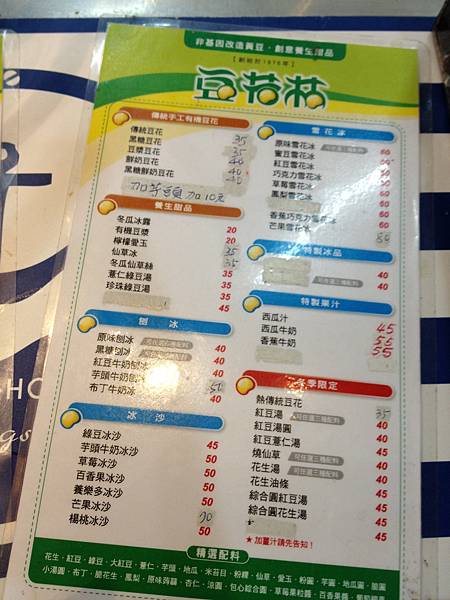 非基因改造黃豆．創意養生甜品
【創始於1976年】
豆花莊
傳統手工有機豆花
傳統豆花 35
黑糖豆花 35
豆漿豆花 40
鮮奶豆花 40
黑糖鮮奶豆花
加芋頭 加10元
養生甜品
冬瓜冰露 20
有機豆漿 20
檸檬愛玉 20
仙草冰 35
冬瓜仙草絲 35
薏仁綠豆湯 35
珍珠綠豆湯 35
45
刨冰
原味刨冰 可任選四種配料 40
黑糖刨冰 可任選四種配料 40
紅豆牛奶刨冰 40
芋頭牛奶刨冰 40
布丁牛奶冰 50
冰沙
綠豆冰沙 45
芋頭牛奶冰沙 50
草莓冰沙 50
百香果冰沙 50
養樂多冰沙 50
芒果冰沙 50
楊桃冰沙 70
50
雪花冰
原味雪花冰 可任選三種配料 60
蜜豆雪花冰
紅豆雪花冰 60
巧克力雪花冰 60
草莓雪花冰 60
鳳梨雪花冰 60
60
香蕉巧克力雪花冰 60
芒果雪花冰 80
特製冰品
可任選三種配料 40
40
特製果汁
西瓜汁 45
西瓜牛奶 55
香蕉牛奶 55
冬季限定
熱傳統豆花 35
紅豆湯 可任選三種配料 40
紅豆湯圓 40
紅豆薏仁湯 40
燒仙草 可任選三種配料 45
花生湯 可任選三種配料 40
花生油條 40
綜合圓紅豆湯 45
綜合圓花生湯 45
45
★加薑汁請先告知！
精選配料
花生．紅豆．綠豆．大紅豆．薏仁．芋頭．地瓜．米苔目．粉粿．仙草．愛玉．粉圓．芋圓．地瓜圓．脆圓
小湯圓．布丁．脆花生．鳳梨．原味蒟蒻．杏仁．涼圓．包心綜合圓．草莓果粒醬．百香果醬